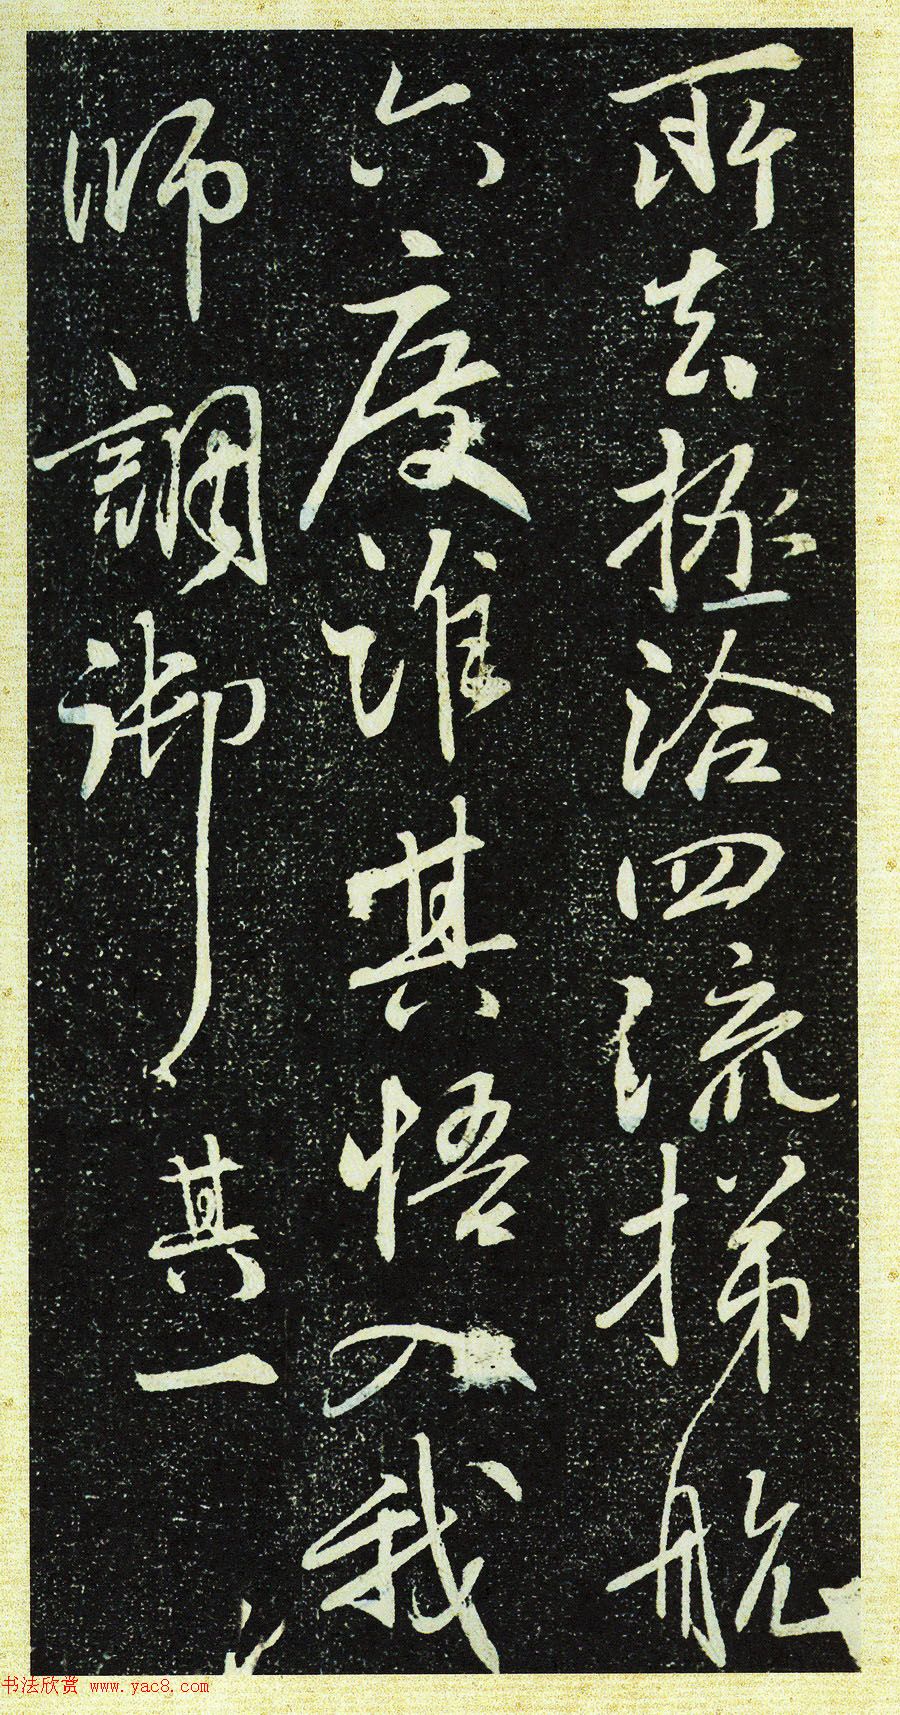 所去拯洽四流梯航
六度谁其悟入我
师調御其一
书法欣赏 www.yac8.com